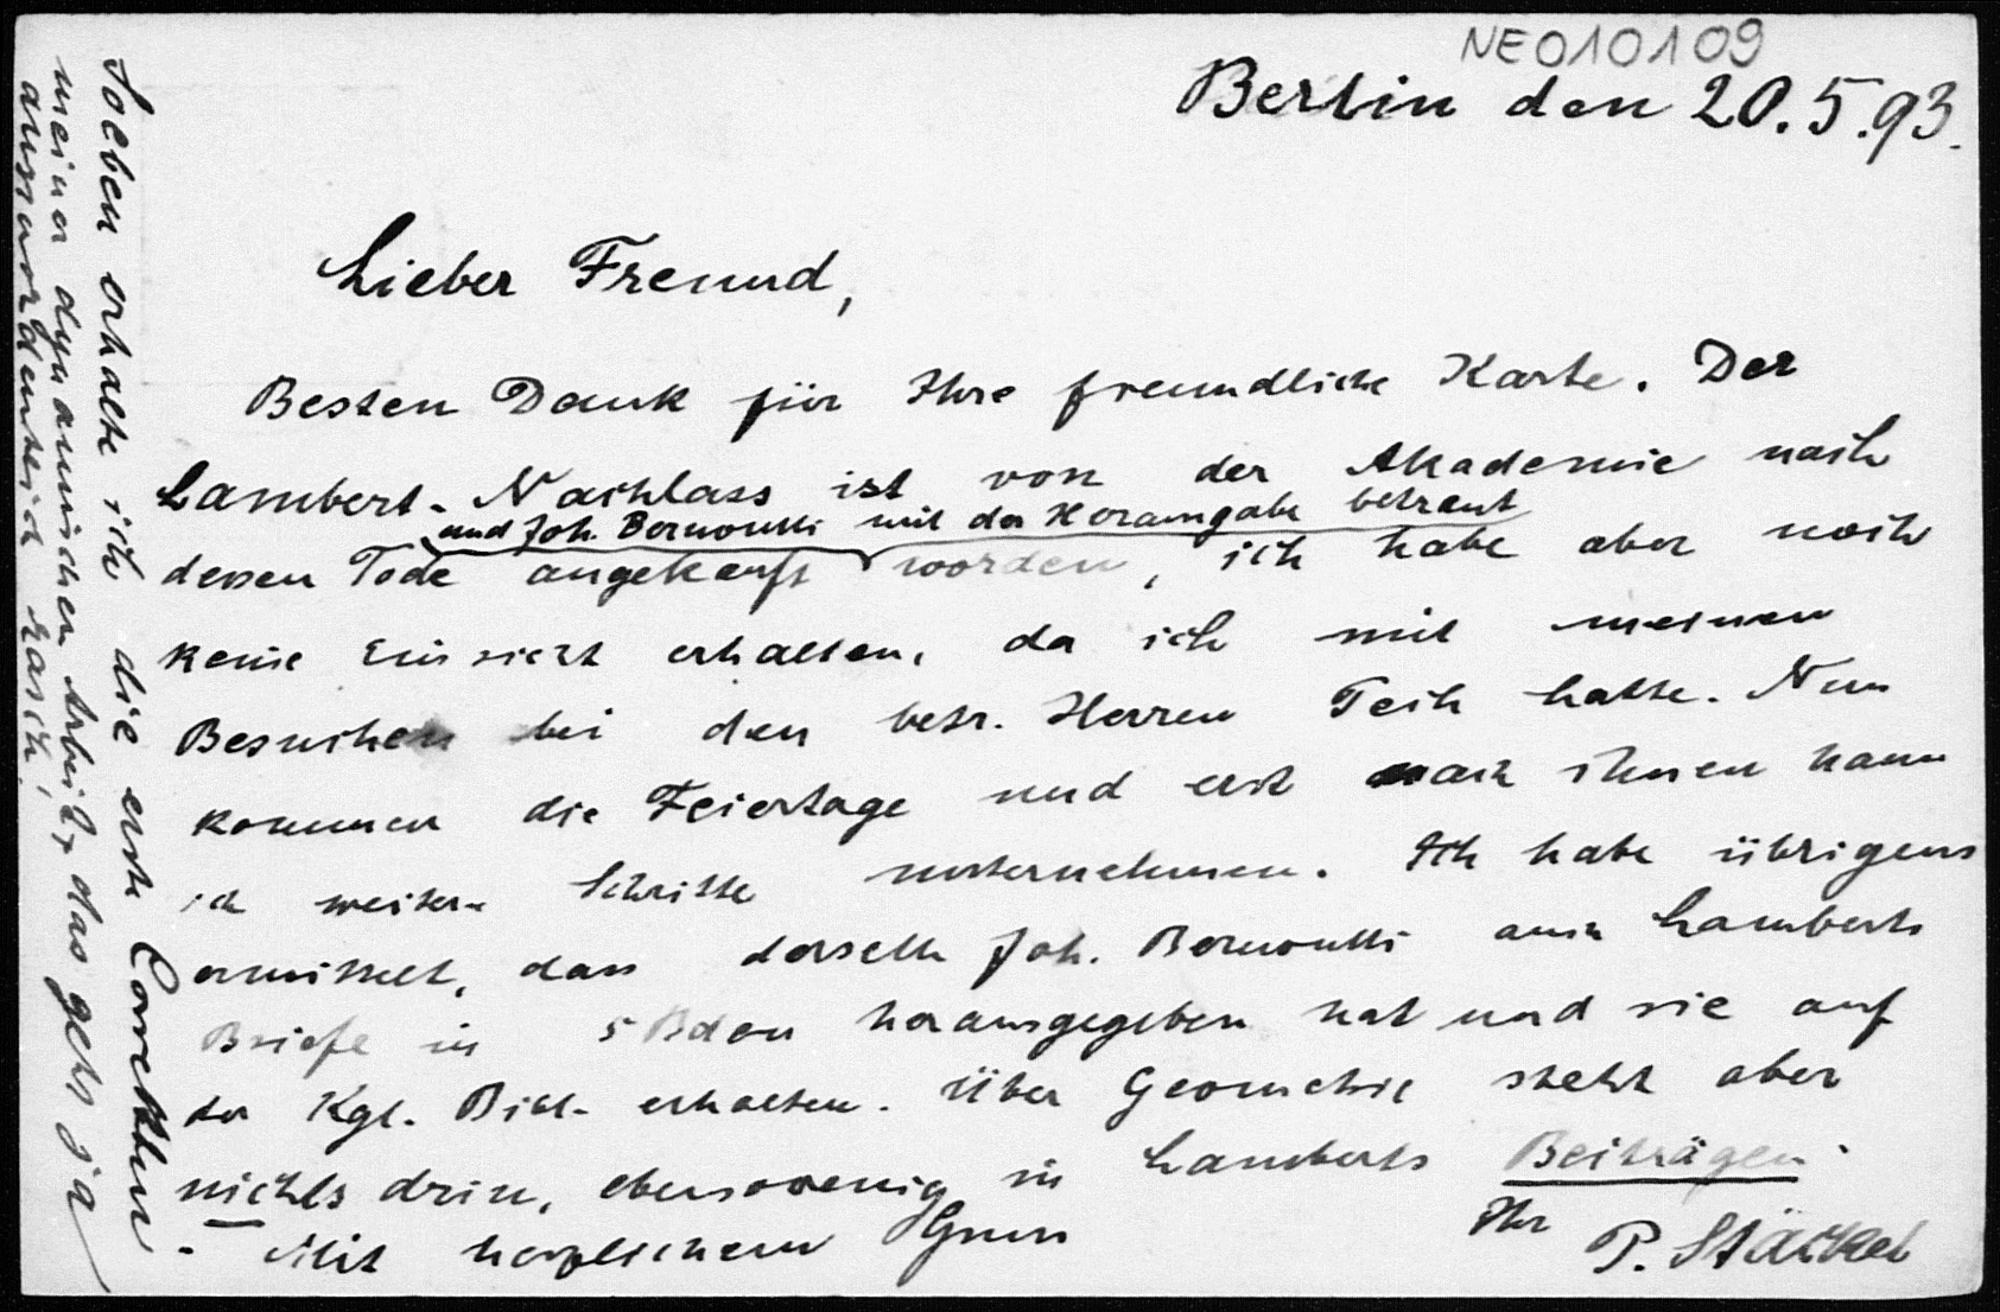 NE010109
Berlin den 20.5.93.
Lieber Freund,
Besten Dank für Ihre freundliche Karte. Der
Lambert-Nachlass ist von der Akademie nach
und Joh. Bernoulli mit der Herausgabe betraut
dessen Tode angekauft worden, ich habe aber noch
keine Einsicht erhalten, da ich mit meinen
Besuchen bei den betr. Herren Pech hatte. Nun
kommen die Feiertage und erst nach ihnen kann
ich weitere Schritte unternehmen. Ich habe übrigens
ermittelt, dass derselbe Joh. Bernoulli auch Lamberts
Briefe in 5 Bden herausgegeben hat und sie auf
der Kgl. Bibl. erhalten. Über Geometrie steht aber
nichts drin, ebensowenig in Lamberts Beiträgen.
- Mit herzlichem Gruss
Ihr P. Stäckel
Soeben erhalte ich die erste Correktur
meiner dynamischen Arbeit, das geht ja
ausserordentlich rasch!